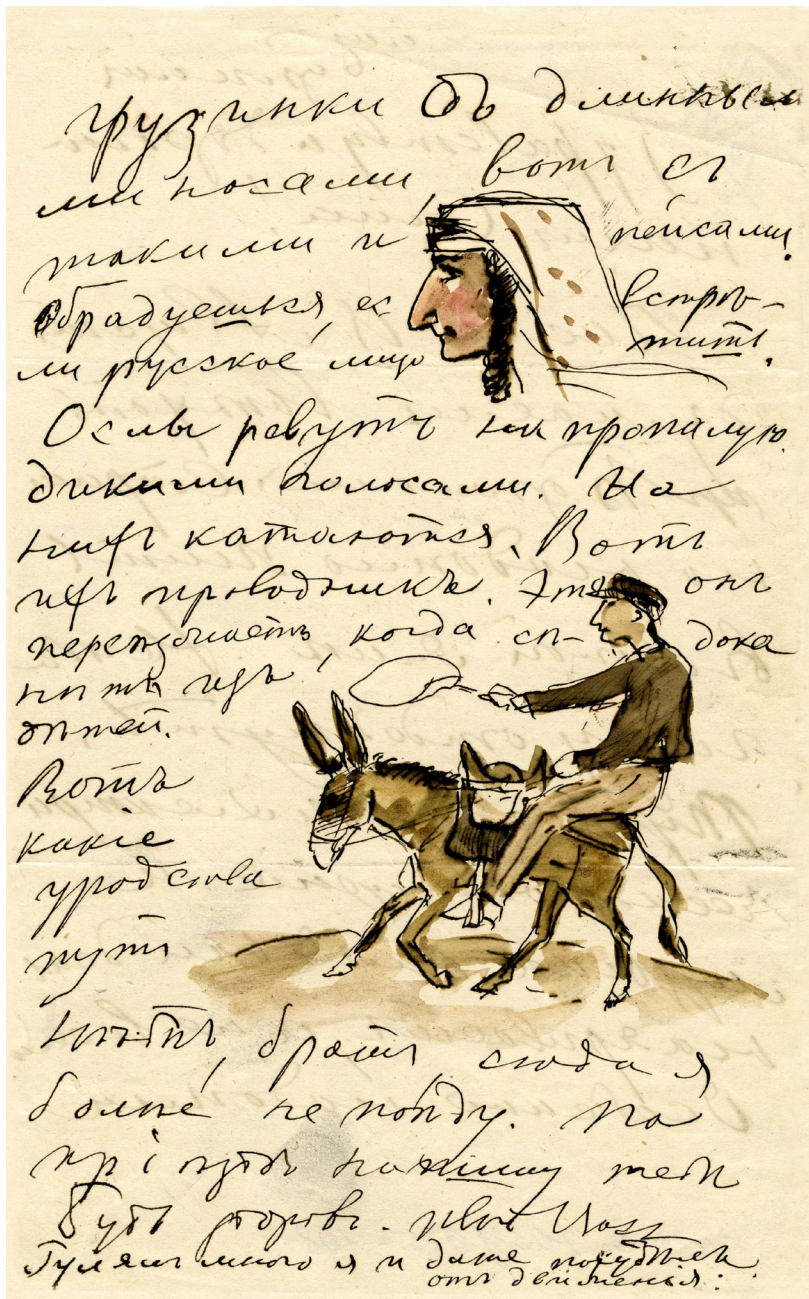 грузинки съ длинны
ми носами, вотъ съ
такими и пейсами.
Обрадуешься, ес встрѣ-
ли русское лицо тить.
Ослы ревутъ на пропалую
дикими голосами. На
нихъ катаются. Вотъ
ихъ проводникъ. онъ
когда сѣ- дока
нѣтъ
дѣтей.
Вотъ
какіе
уродства
тутъ
Нѣтъ, братъ, сюда я
болѣе не поѣду. По
пріѣздѣ напишу тебѣ
Будь здоровъ. твой
Гуляемъ много я и даже похудѣлъ
отъ движенья.